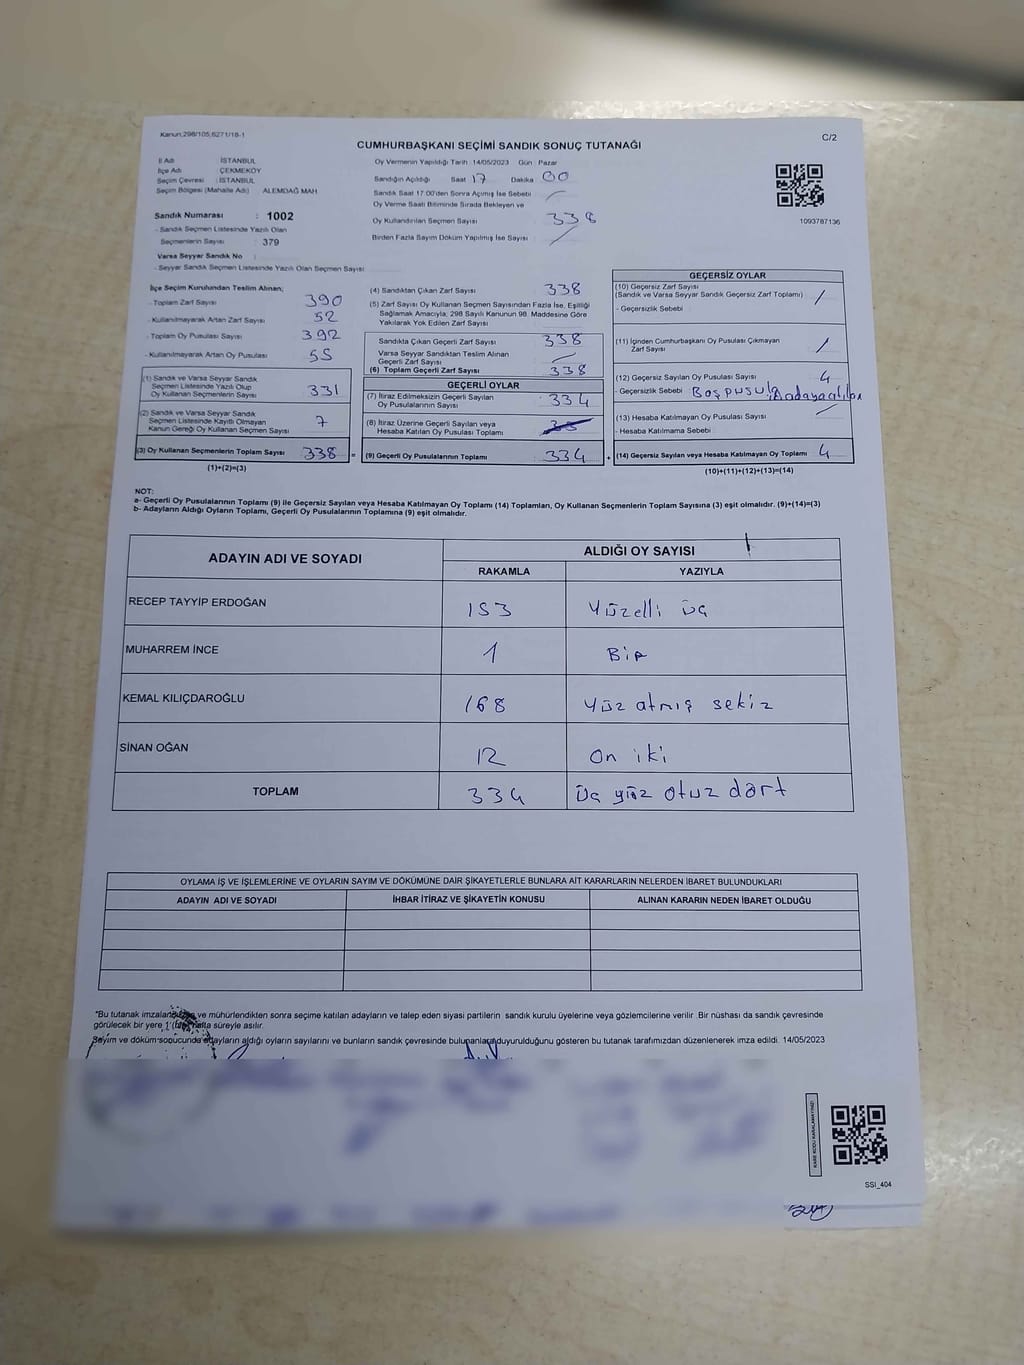 Kanun;298/105,6271/18-1
C/2
CUMHURBAŞKANI SEÇİMİ SANDIK SONUÇ TUTANAĞI
İl Adı : İSTANBUL
İlçe Adı : ÇEKMEKÖY
Seçim Çevresi : İSTANBUL
Seçim Bölgesi (Mahalle Adı) : ALEMDAĞ MAH.
Sandık Numarası : 1002
- Sandık Seçmen Listesinde Yazılı Olan
Seçmenlerin Sayısı : 379
Varsa Seyyar Sandık No :
- Seyyar Sandık Seçmen Listesinde Yazılı Olan Seçmen Sayısı
Oy Vermenin Yapıldığı Tarih :14/05/2023 Gün : Pazar
Sandığın Açıldığı Saat 17 Dakika 00
Sandık Saat 17.00'den Sonra Açımış İse Sebebi
Oy Verme Saati Bitiminde Sırada Bekleyen ve
Oy Kullandırılan Seçmen Sayısı 338
Birden Fazla Sayım Döküm Yapılmış İse Sayısı
1093787136
İlçe Seçim Kurulundan Teslim Alınan;
- Toplam Zarf Sayısı 390
- Kullanılmayarak Artan Zarf Sayısı 52
- Toplam Oy Pusulası Sayısı 392
- Kullanılmayarak Artan Oy Pusulası 55
(1) Sandık ve Varsa Seyyar Sandık
Seçmen Listesinde Yazılı Olup
Oy Kullanan Seçmenlerin Sayısı 331
(2) Sandık ve Varsa Seyyar Sandık
Seçmen Listesinde Kayıtlı Olmayan
Kanun Gereği Oy Kullanan Seçmen Sayısı 7
(3) Oy Kullanan Seçmenlerin Toplam Sayısı 338 =
(1)+(2)=(3)
(4) Sandıktan Çıkan Zarf Sayısı 338
(5) Zarf Sayısı Oy Kullanan Seçmen Sayısından Fazla İse, Eşitliği
Sağlamak Amacıyla, 298 Sayılı Kanunun 98. Maddesine Göre
Yakılarak Yok Edilen Zarf Sayısı
Sandıkta Çıkan Geçerli Zarf Sayısı 338
Varsa Seyyar Sandıktan Teslim Alınan
Geçerli Zarf Sayısı
(6) Toplam Geçerli Zarf Sayısı 338
GEÇERLİ OYLAR
(7) İtiraz Edilmeksizin Geçerli Sayılan
Oy Pusulalarının Sayısı 334
(8) İtiraz Üzerine Geçerli Sayılan veya
Hesaba Katılan Oy Pusulası Toplamı
(9) Geçerli Oy Pusulalarının Toplamı 334 +
GEÇERSİZ OYLAR
(10) Geçersiz Zarf Sayısı
(Sandık ve Varsa Seyyar Sandık Geçersiz Zarf Toplamı)
- Geçersizlik Sebebi
(11) İçinden Cumhurbaşkanı Oy Pusulası Çıkmayan
Zarf Sayısı
(12) Geçersiz Sayılan Oy Pusulası Sayısı 4
- Geçersizlik Sebebi Boş pusula,
(13) Hesaba Katılmayan Oy Pusulası Sayısı
- Hesaba Katılmama Sebebi
(14) Geçersiz Sayılan veya Hesaba Katılmayan Oy Toplamı 4
(10)+(11)+(12)+(13)=(14)
NOT:
a- Geçerli Oy Pusulalarının Toplamı (9) ile Geçersiz Sayılan veya Hesaba Katılmayan Oy Toplamı (14) Toplamları, Oy Kullanan Seçmenlerin Toplam Sayısına (3) eşit olmalıdır. (9)+(14)=(3)
b- Adayların Aldığı Oyların Toplamı, Geçerli Oy Pusulalarının Toplamına (9) eşit olmalıdır.
ADAYIN ADI VE SOYADI
ALDIĞI OY SAYISI
RAKAMLA YAZIYLA
RECEP TAYYİP ERDOĞAN 153 Yüzelli üç
MUHARREM İNCE 1 Bir
KEMAL KILIÇDAROĞLU 168 Yüz atmış sekiz
SİNAN OĞAN 12 On iki
TOPLAM 334 Üç yüz otuz dört
OYLAMA İŞ VE İŞLEMLERİNE VE OYLARIN SAYIM VE DÖKÜMÜNE DAİR ŞİKAYETLERLE BUNLARA AİT KARARLARIN NELERDEN İBARET BULUNDUKLARI
ADAYIN ADI VE SOYADI İHBAR İTİRAZ VE ŞİKAYETİN KONUSU ALINAN KARARIN NEDEN İBARET OLDUĞU
"Bu tutanak ve mühürlendikten sonra seçime katılan adayların ve talep eden siyasi partilerin sandık kurulu üyelerine veya gözlemcilerine verilir. Bir nüshası da sandık çevresinde
görülecek bir yere 1 hafta süreyle asılır.
Sayım ve döküm sonucunda adayların aldığı oyların sayılarını ve bunların sandık çevresinde bulunanlara duyurulduğunu gösteren bu tutanak tarafımızdan düzenlenerek imza edildi. 14/05/2023
KARE KODU KARALAMAYINIZ!
SSI_404